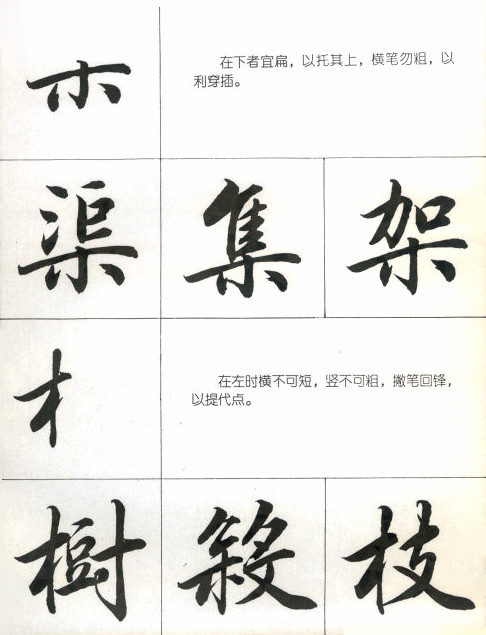 木
在下者宜扁，以托其上，横笔勿粗，以
利穿插。
渠 集 架
木
在左时横不可短，竖不可粗，撇笔回锋，
以提代点。
樹 敘 枝